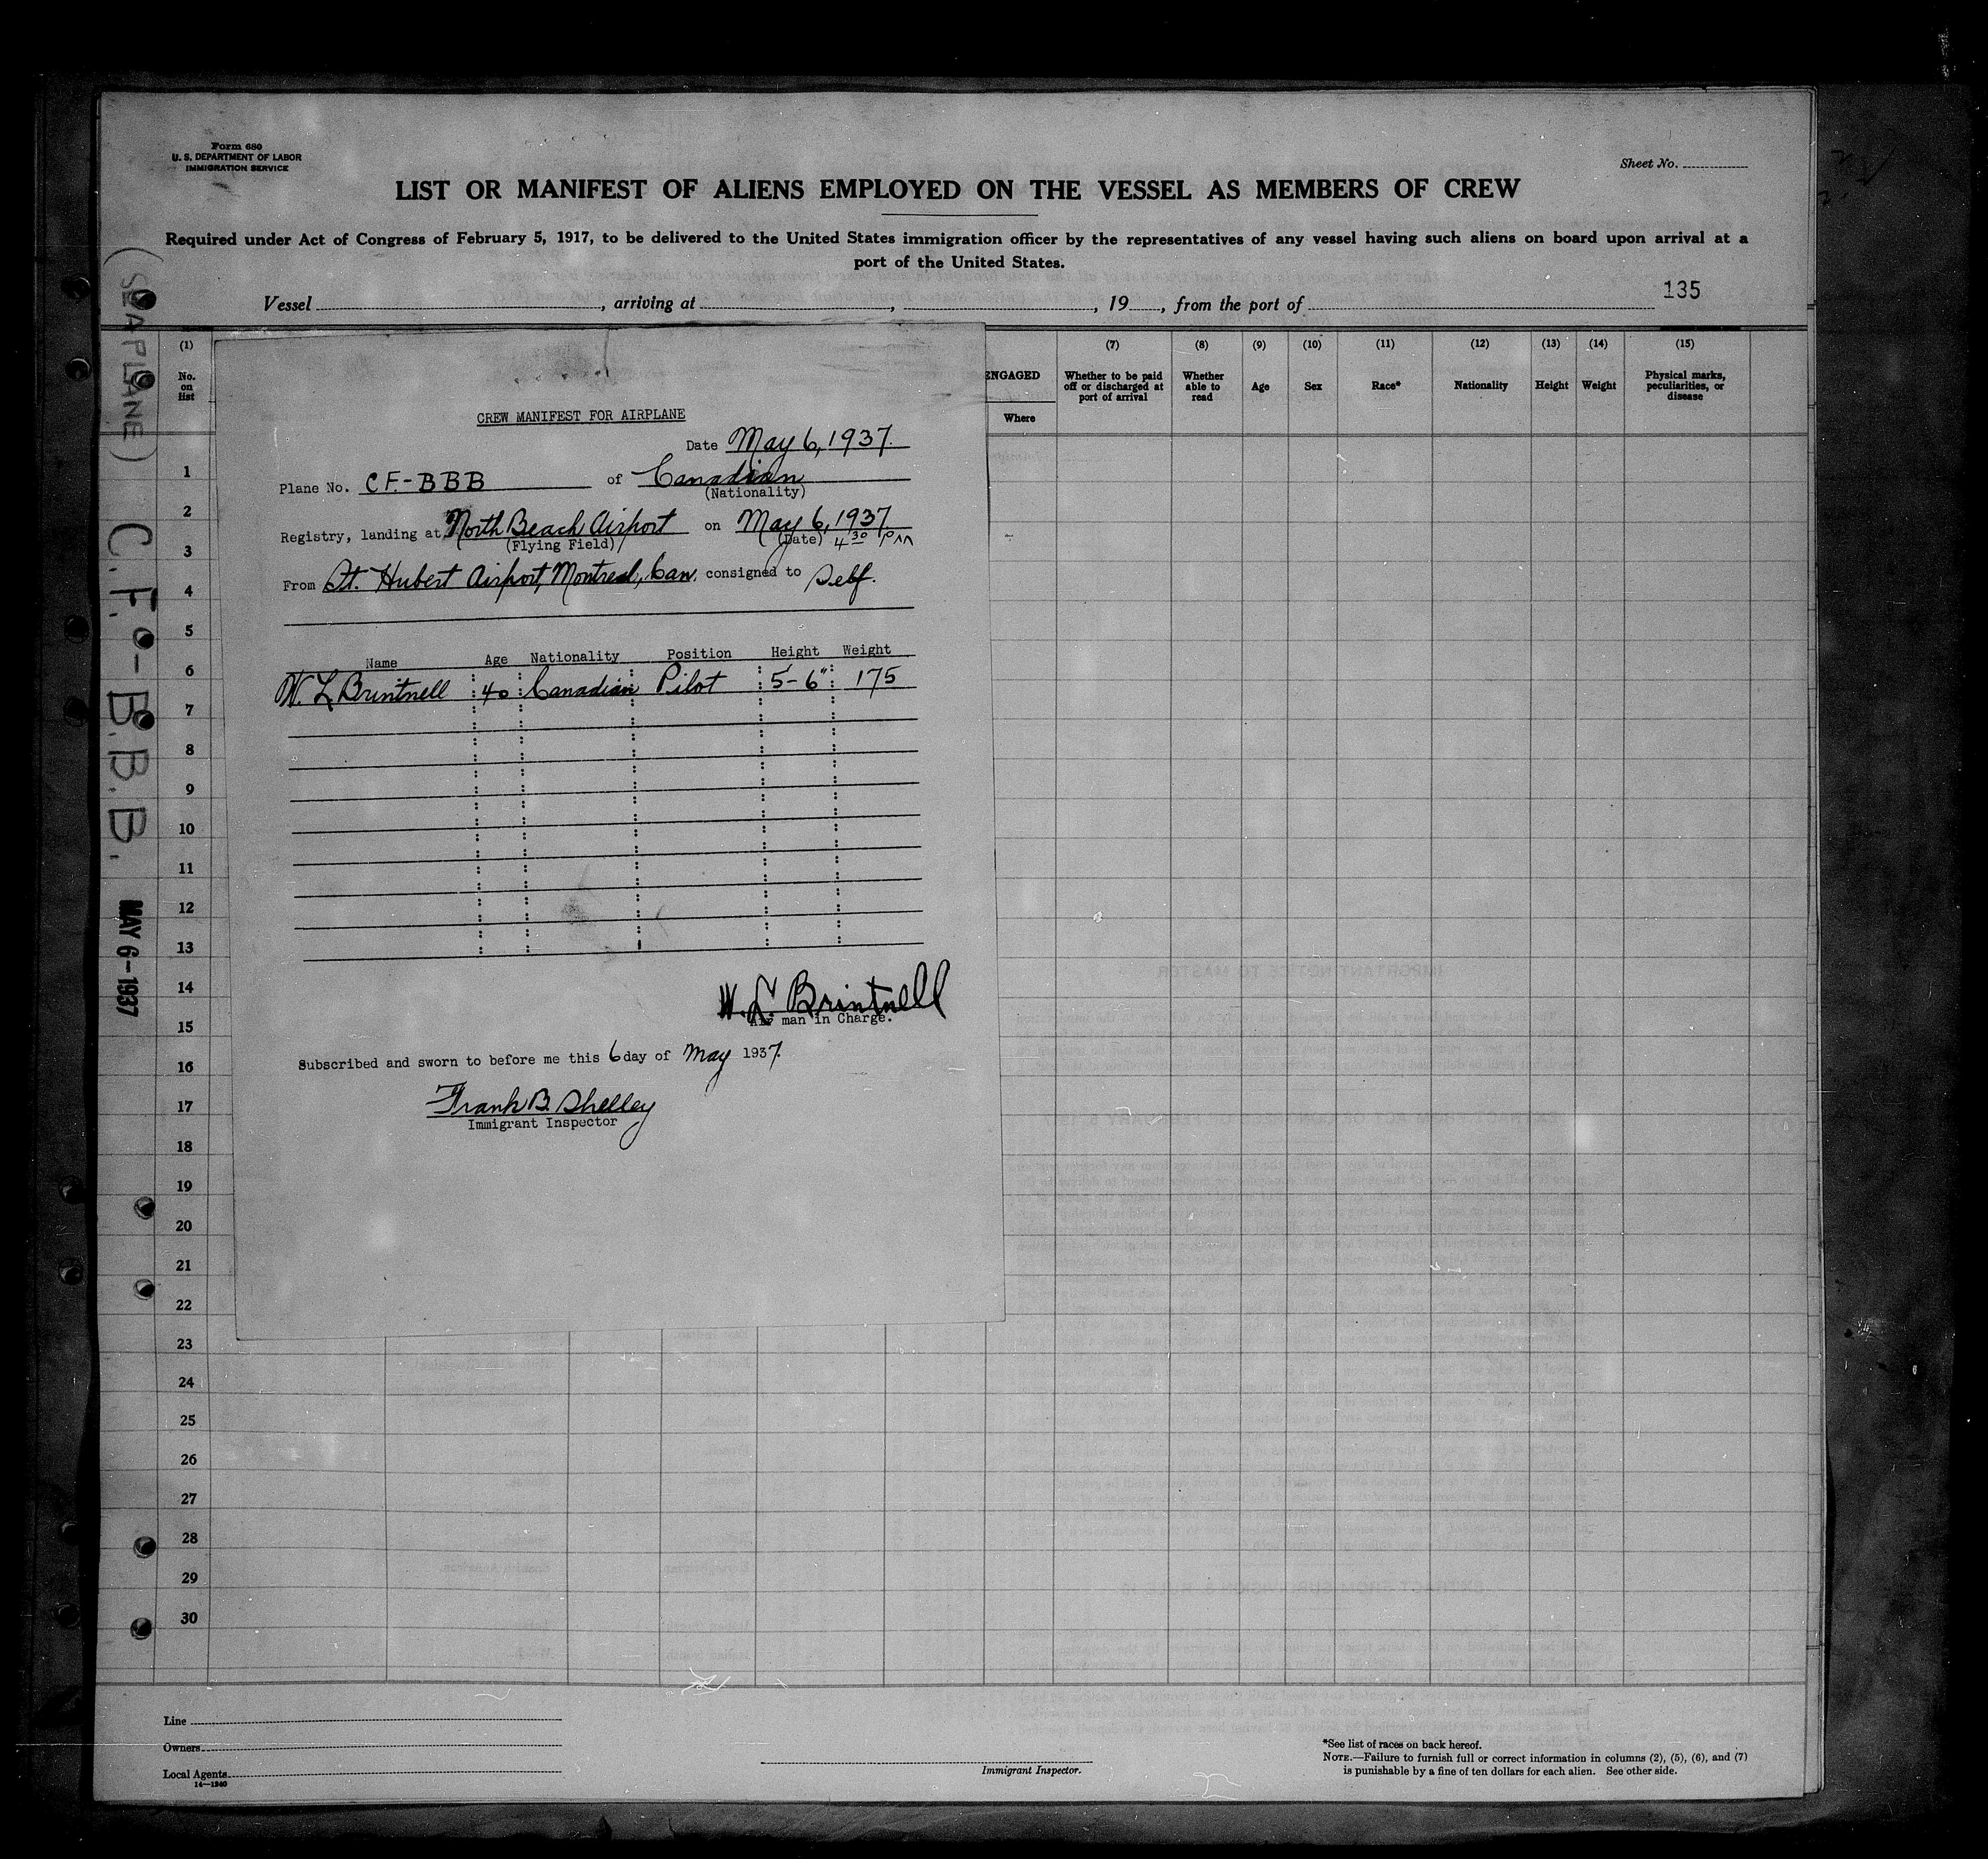 Form 680
U. S. DEPARTMENT OF LABOR
IMMIGRATION SERVICE
Sheet No.
LIST OR MANIFEST OF ALIENS EMPLOYED ON THE VESSEL AS MEMBERS OF CREW
Required under Act of Congress of February 5, 1917, to be delivered to the United States immigration officer by the representatives of any vessel having such aliens on board upon arrival at a
port of the United States.
135
Vessel , arriving at , , 19 , from the port of
(SEAPLANE) C.F.-B.B.B. MAY 6-1937
(1) (7) (8) (9) (10) (11) (12) (13) (14) (15)
No. on list ENGAGED Where Whether to be paid off or discharged at port of arrival Whether able to read Age Sex Race* Nationality Height Weight Physical marks, peculiarities, or disease
CREW MANIFEST FOR AIRPLANE
Date May 6, 1937.
Plane No. CF.-BBB of Canadian
(Nationality)
Registry, landing at North Beach Airport on May 6, 1937.
(Flying Field) (Date) 4 30 PM
From St. Hubert Airport, Montreal, Can. consigned to Self.
Name Age Nationality Position Height Weight
W. L Brintnell 40 Canadian Pilot 5'-6" 175
W. L. Brintnell
Air man in Charge.
Subscribed and sworn to before me this 6 day of May 1937.
Frank B. Shelley
Immigrant Inspector
1
2
3
4
5
6
7
8
9
10
11
12
13
14
15
16
17
18
19
20
21
22
23
24
25
26
27
28
29
30
Line
Owners
Local Agents
14—1240
Immigrant Inspector.
*See list of races on back hereof.
NOTE.—Failure to furnish full or correct information in columns (2), (5), (6), and (7)
is punishable by a fine of ten dollars for each alien. See other side.